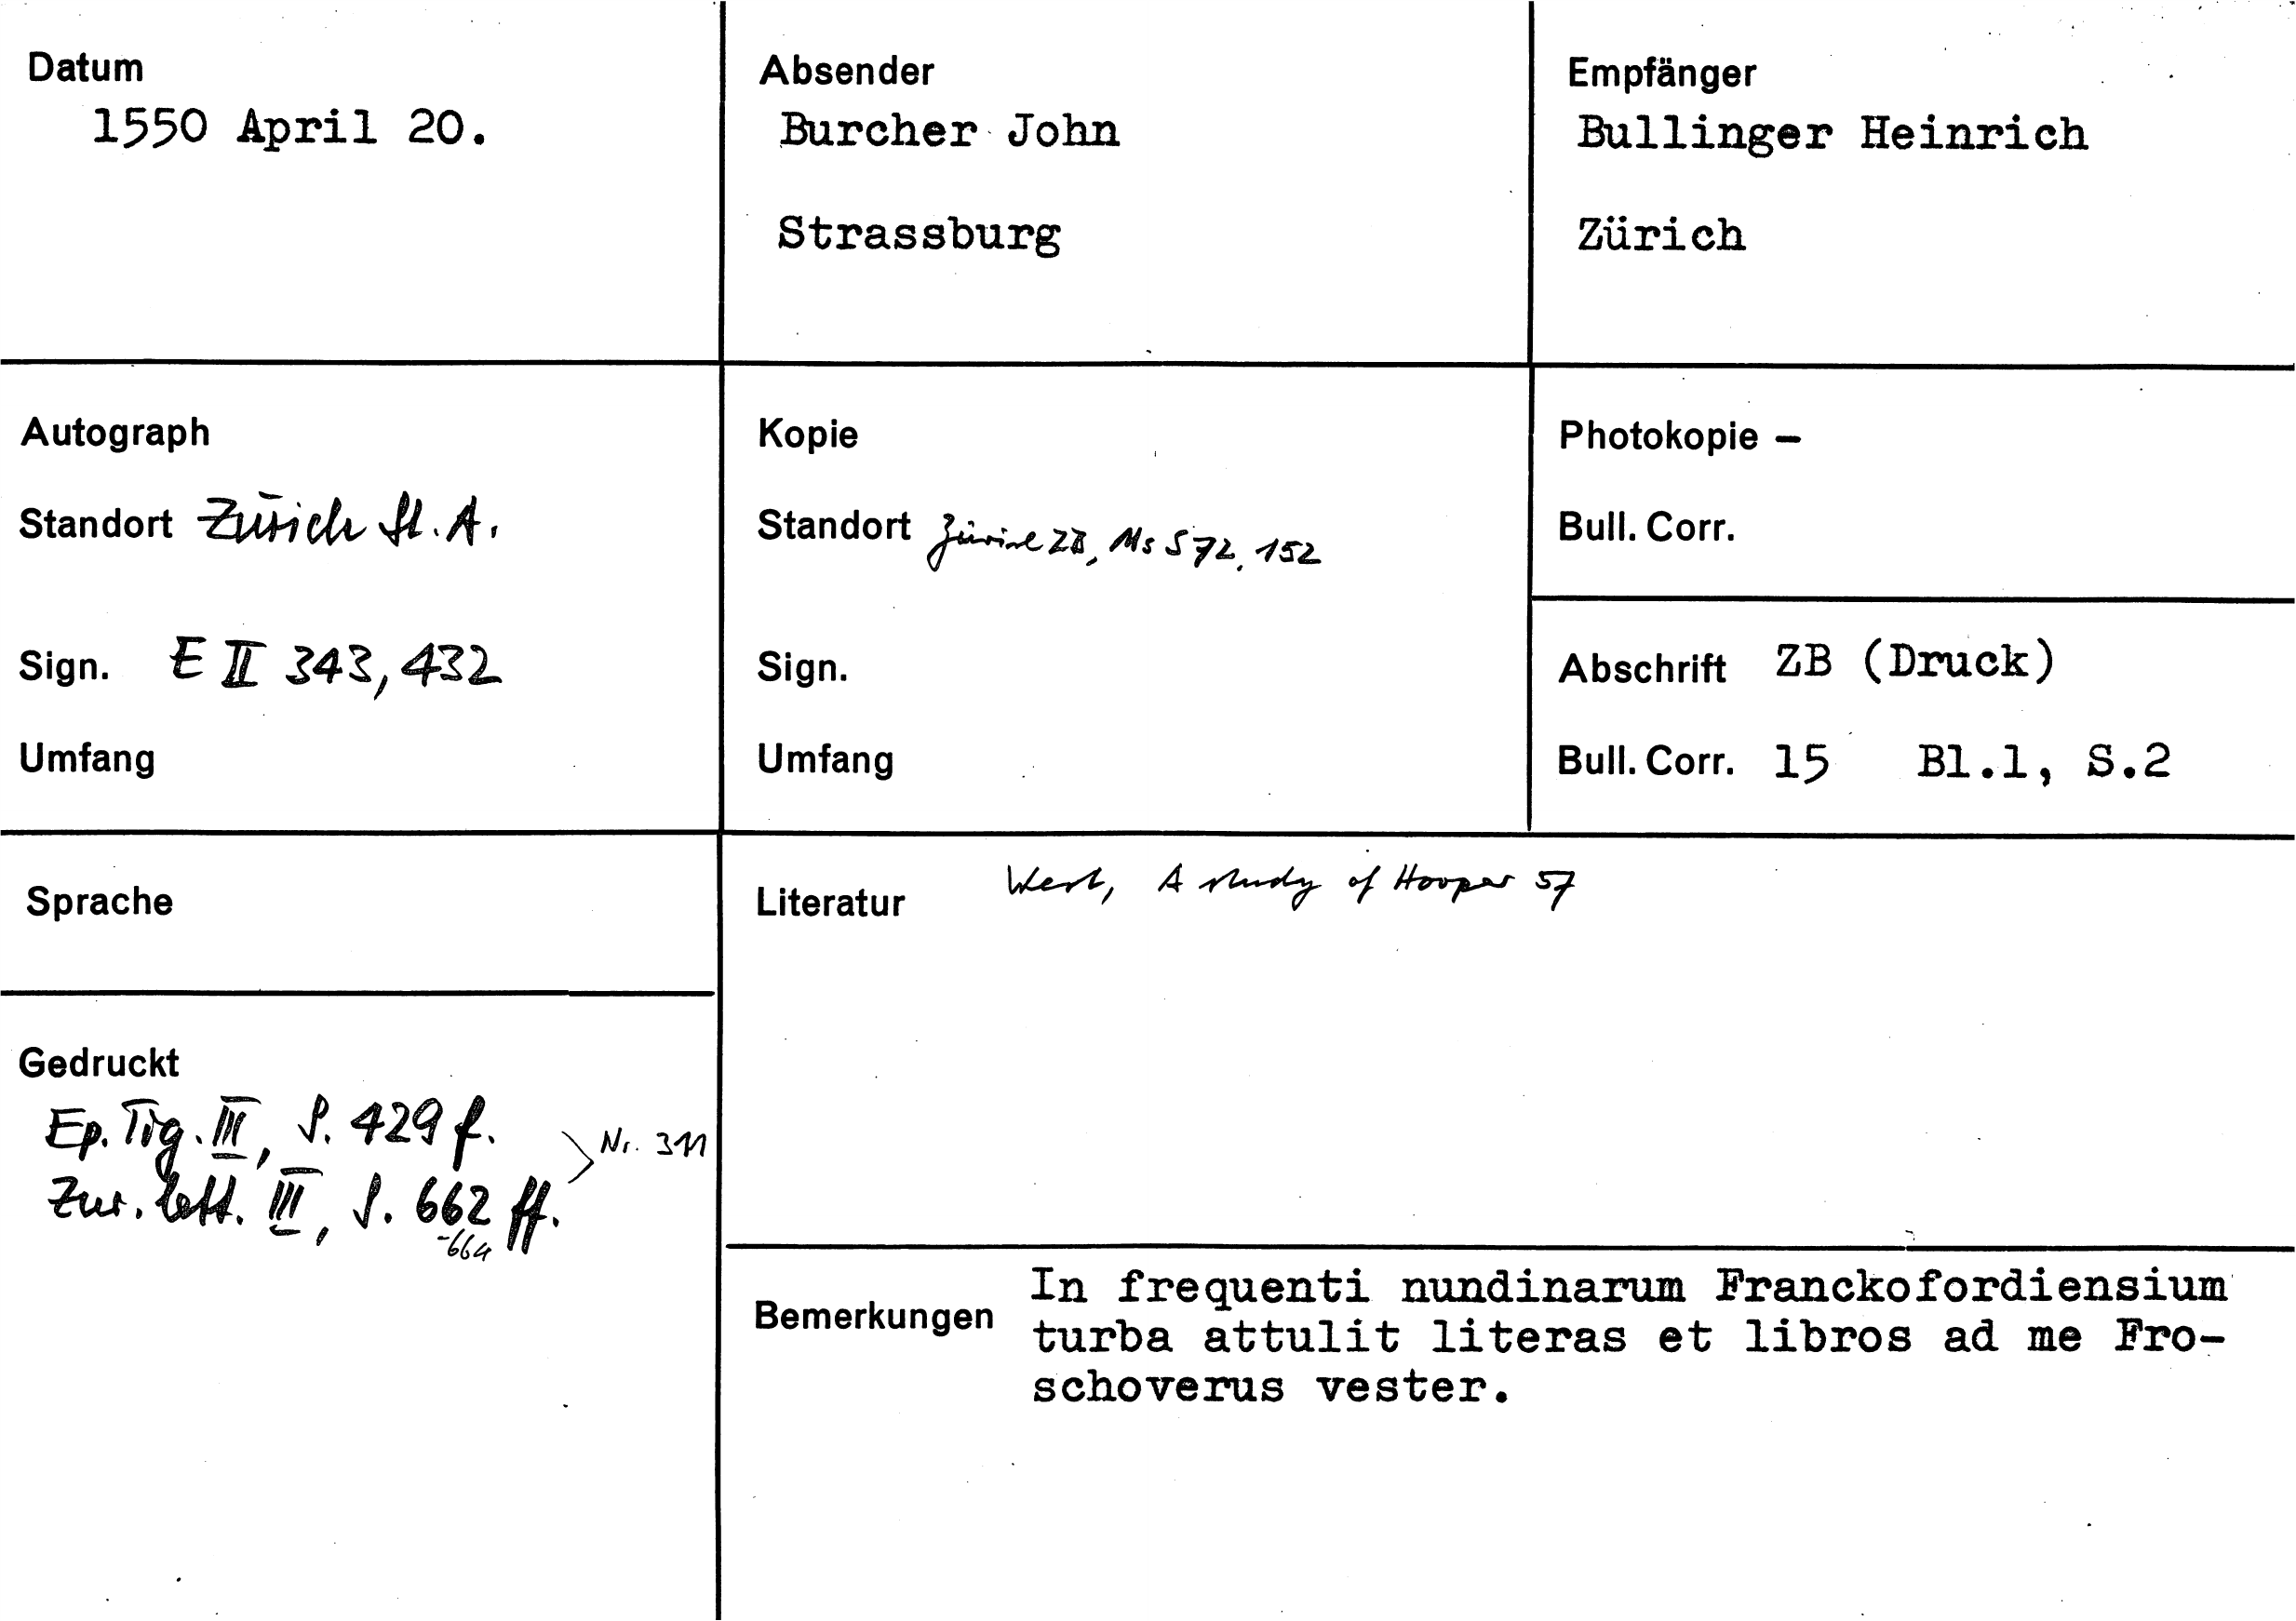 Datum
1550 April 20.
Absender
Burcher John
Strassburg
Empfänger
Bullinger Heinrich
Zürich
Autograph
Standort Zürich St. A.
Sign. E II 343, 432
Umfang
Kopie
Standort Zürich ZB, Ms S 72, 152
Sign.
Umfang
Photokopie –
Bull. Corr.
Abschrift ZB (Druck)
Bull. Corr. 15 Bl.1, S.2
Sprache
Gedruckt
Ep. Tig. III, S. 429 f.
Zur. lett. III, S. 662 ff.
-664
Nr. 311
Literatur West, A study of Hooper 57
Bemerkungen In frequenti nundinarum Franckofordiensium
turba attulit literas et libros ad me Fro-
schoverus vester.